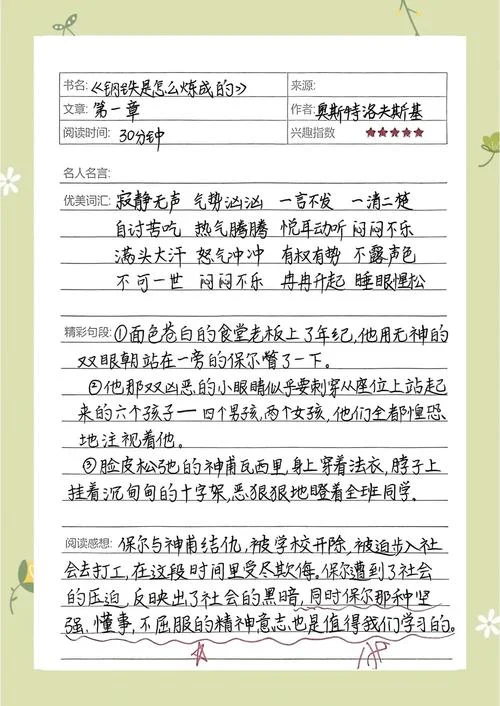 书名:《钢铁是怎么炼成的》 来源:
文章: 第一章 作者: 奥斯特洛夫斯基
阅读时间: 30分钟 兴趣指数 ★★★★★
名人名言:
优美词汇: 寂静无声 气势汹汹 一言不发 一清二楚
自讨苦吃 热气腾腾 悦耳动听 闷闷不乐
满头大汗 怒气冲冲 有权有势 不露声色
不可一世 闷闷不乐 冉冉升起 睡眼惺松
精彩句段: ①面色苍白的食堂老板上了年纪,他用无神的
双眼朝站在一旁的保尔瞥了一下。
②他那双凶恶的小眼睛似乎要刺穿从座位上站起
来的六个孩子一四个男孩,两个女孩,他们全都惶恐
地注视着他。
③脸皮松弛的神甫瓦西里,身上穿着法衣,脖子上
挂着沉甸甸的十字架,恶狠狠地瞪着全班同学。
阅读感想: 保尔与神甫结仇,被学校开除,被迫步入社
会去打工,在这段时间里受尽欺侮。保尔遭到了社会
的压迫,反映出了社会的黑暗,同时保尔那种坚
强、懂事,不屈服的精神意志也是值得我们学习的。